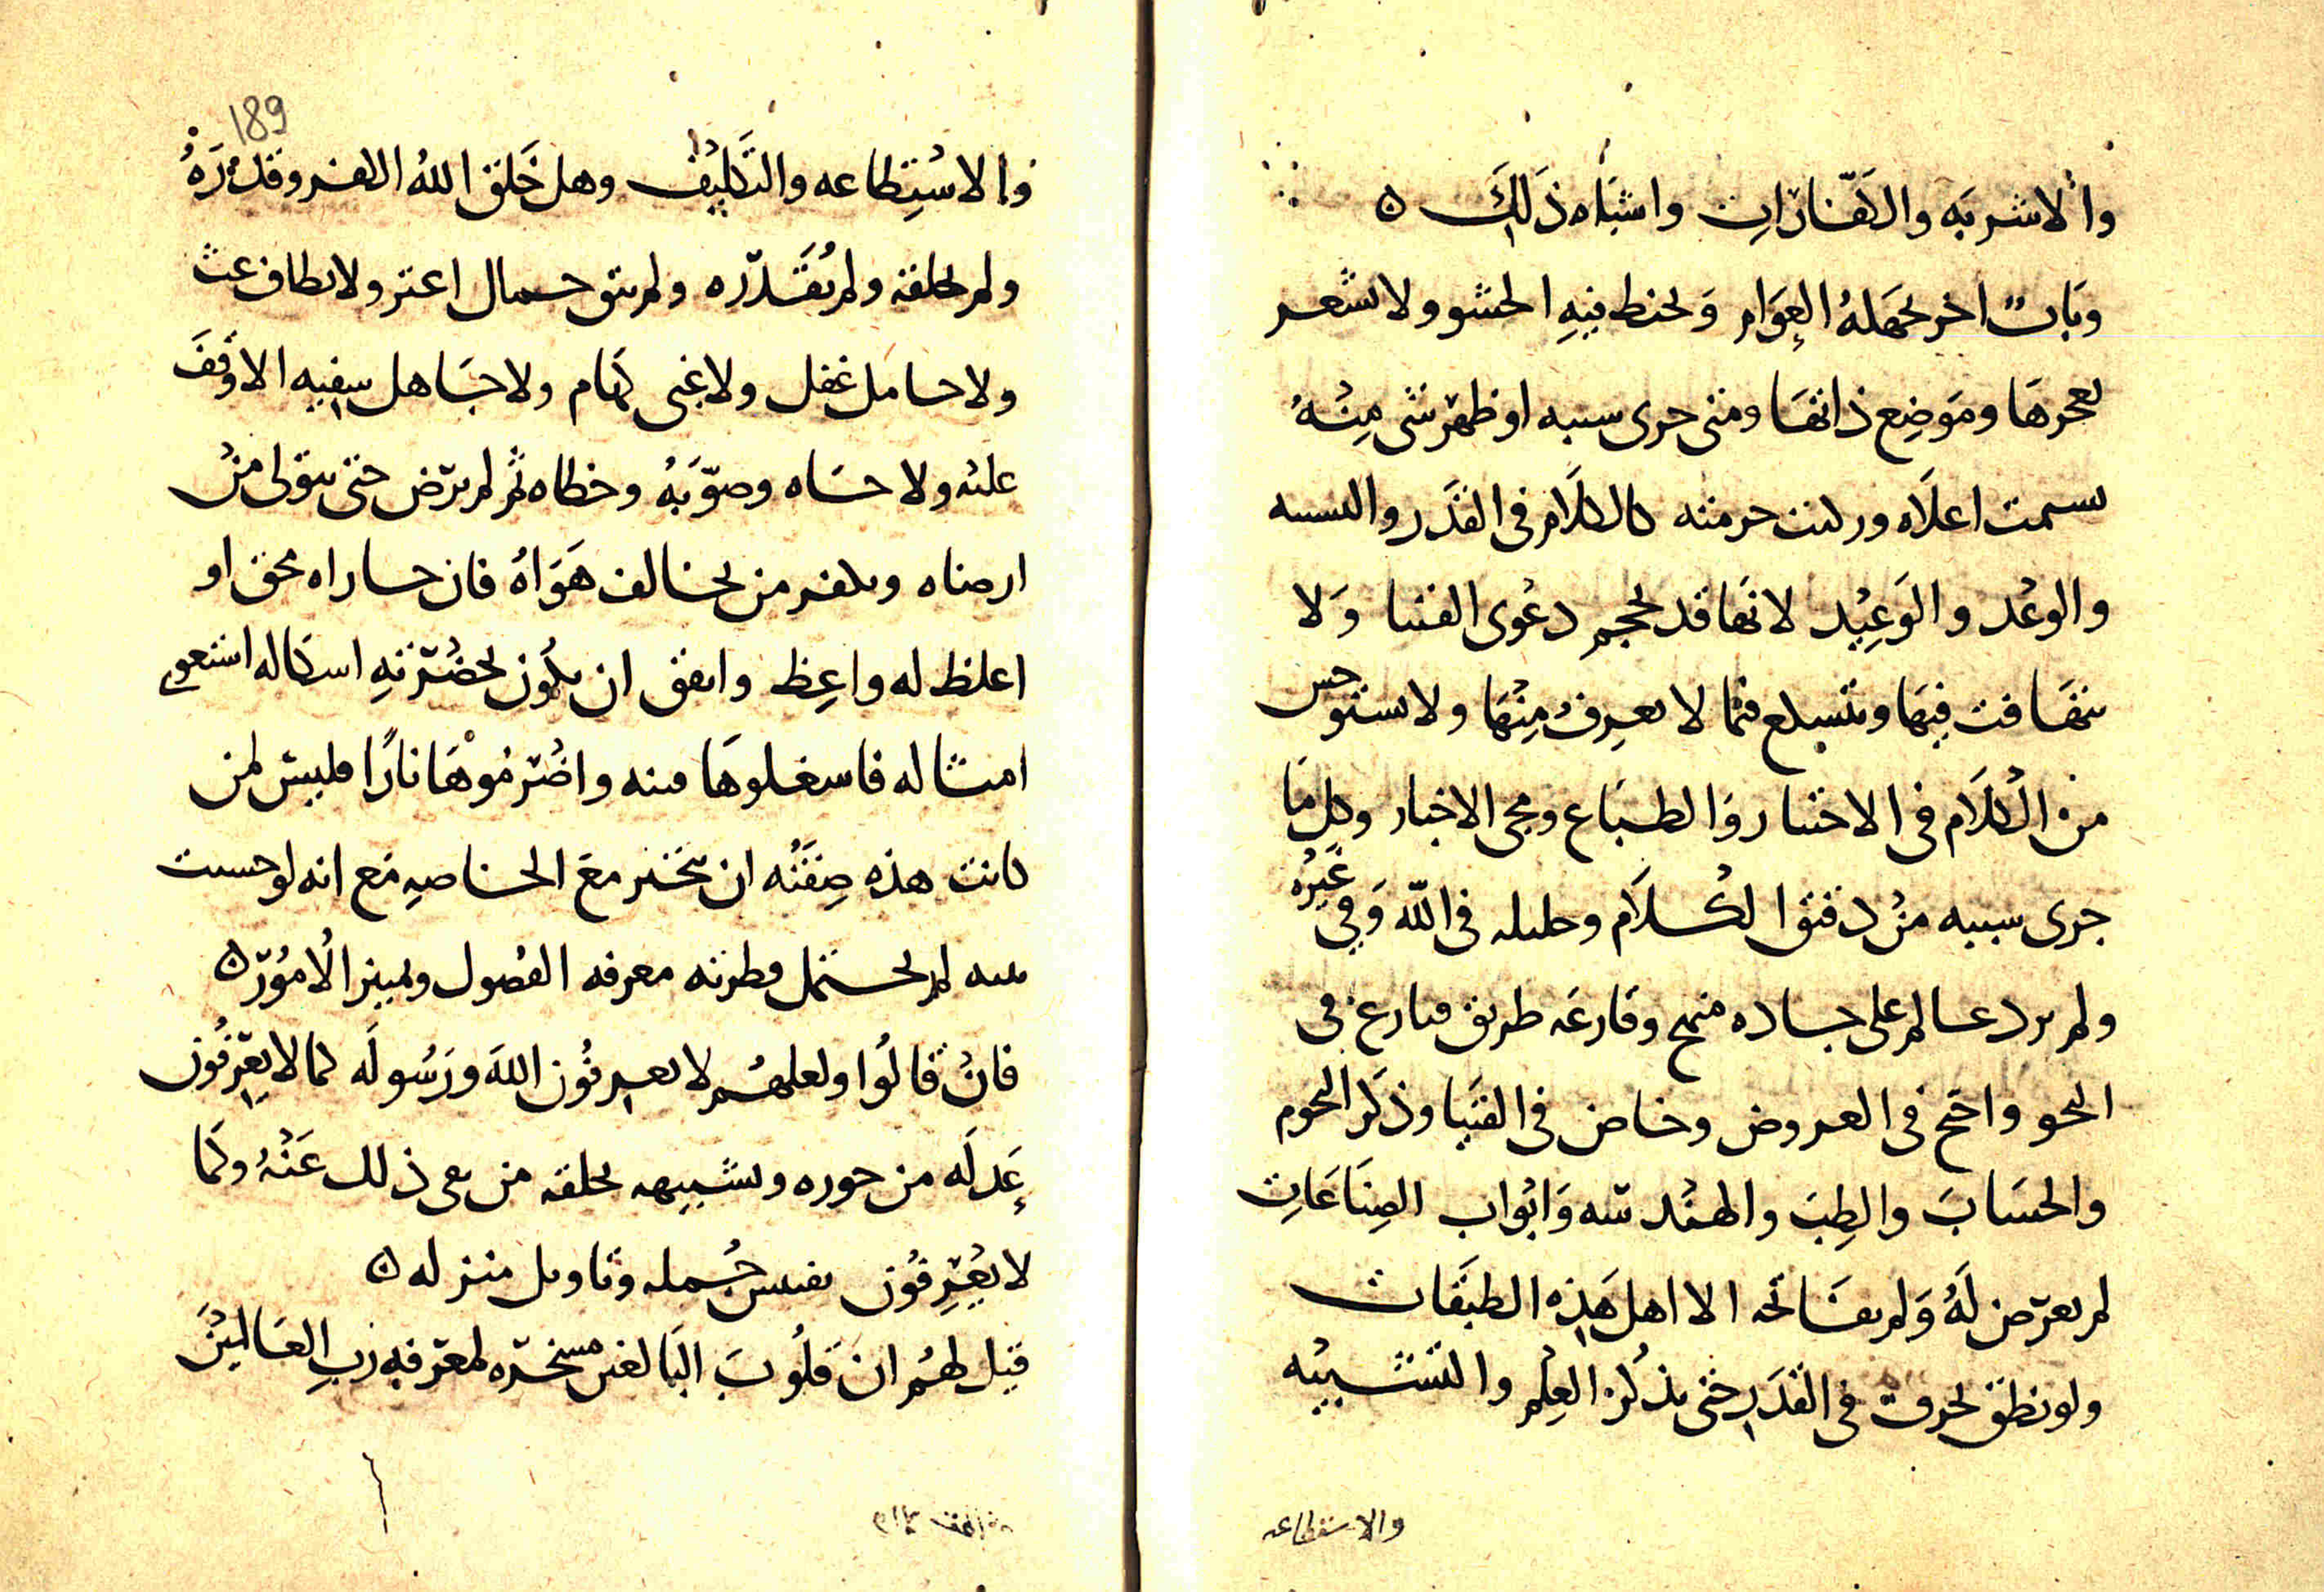 والاشربه والكفارات واشباه ذلك ه
وباب اخر يجهله العوام ويخبط فيه الحشو ولا تشعر
بعجزها وموضع دائها ومتى جرى سببه او ظهر شى منه
تسمت اعلاه وركبت حومته كالكلام فى القدر والتشبيه
والوعد والوعيد لانها قد تحجم دعوى الفتيا ولا
تتهافت فيها وتتسكع فيما لا تعرف منها ولا تستوحش
من الكلام فى الاختيار والطباع ومجى الاخبار وكل ما
جرى سببه من دقيق الكلام وجليله فى الله وفى غيره
ولو برز عالم على جاده منهج وقارعه طريق فنازع فى
النحو واحتج فى العروض وخاض فى الفتيا وذكر النجوم
والحساب والطب والهندسه وابواب الصناعات
لم يعرض له ولم يفاتحه الا اهل هذه الطبقات
ولو نطق بحرف فى القدر حتى يذكر العلم والتشبيه
والاستطاعه
189
والاستطاعه والتكليف وهل خلق الله الكفر وقدره
ولم يخلقه ولم يقدره ولم يبق حمال اعثر ولا نطاف غث
ولا خامل غفل ولا غبى كهام ولا جاهل سفيه الا وقف
عليه ولاحاه وصوبه وخطاه ثم لم يرض حتى يتولى من
ارضاه ويكفر من يخالف هواه فان جاراه محق او
اغلظ له واعظ واتفق ان يكون بحضرته اشكاله استغوى
امثاله فاشعلوها فتنه واضرموها نارا فليس لمن
كانت هذه صفته ان يتحيز مع الخاصه مع انه لو حسنت
نيته لم يحتمل فطرته معرفه الفصول وتمييز الامور ه
فان قالوا ولعلهم لا يعرفون الله ورسوله كما لا يعرفون
عدله من جوره وتشبيهه بخلقه من نفى ذلك عنه وكما
لا يعرفون تفسير جمله وتاويل منزله ه
قيل لهم ان قلوب البالغين مسخره لمعرفه رب العالمين